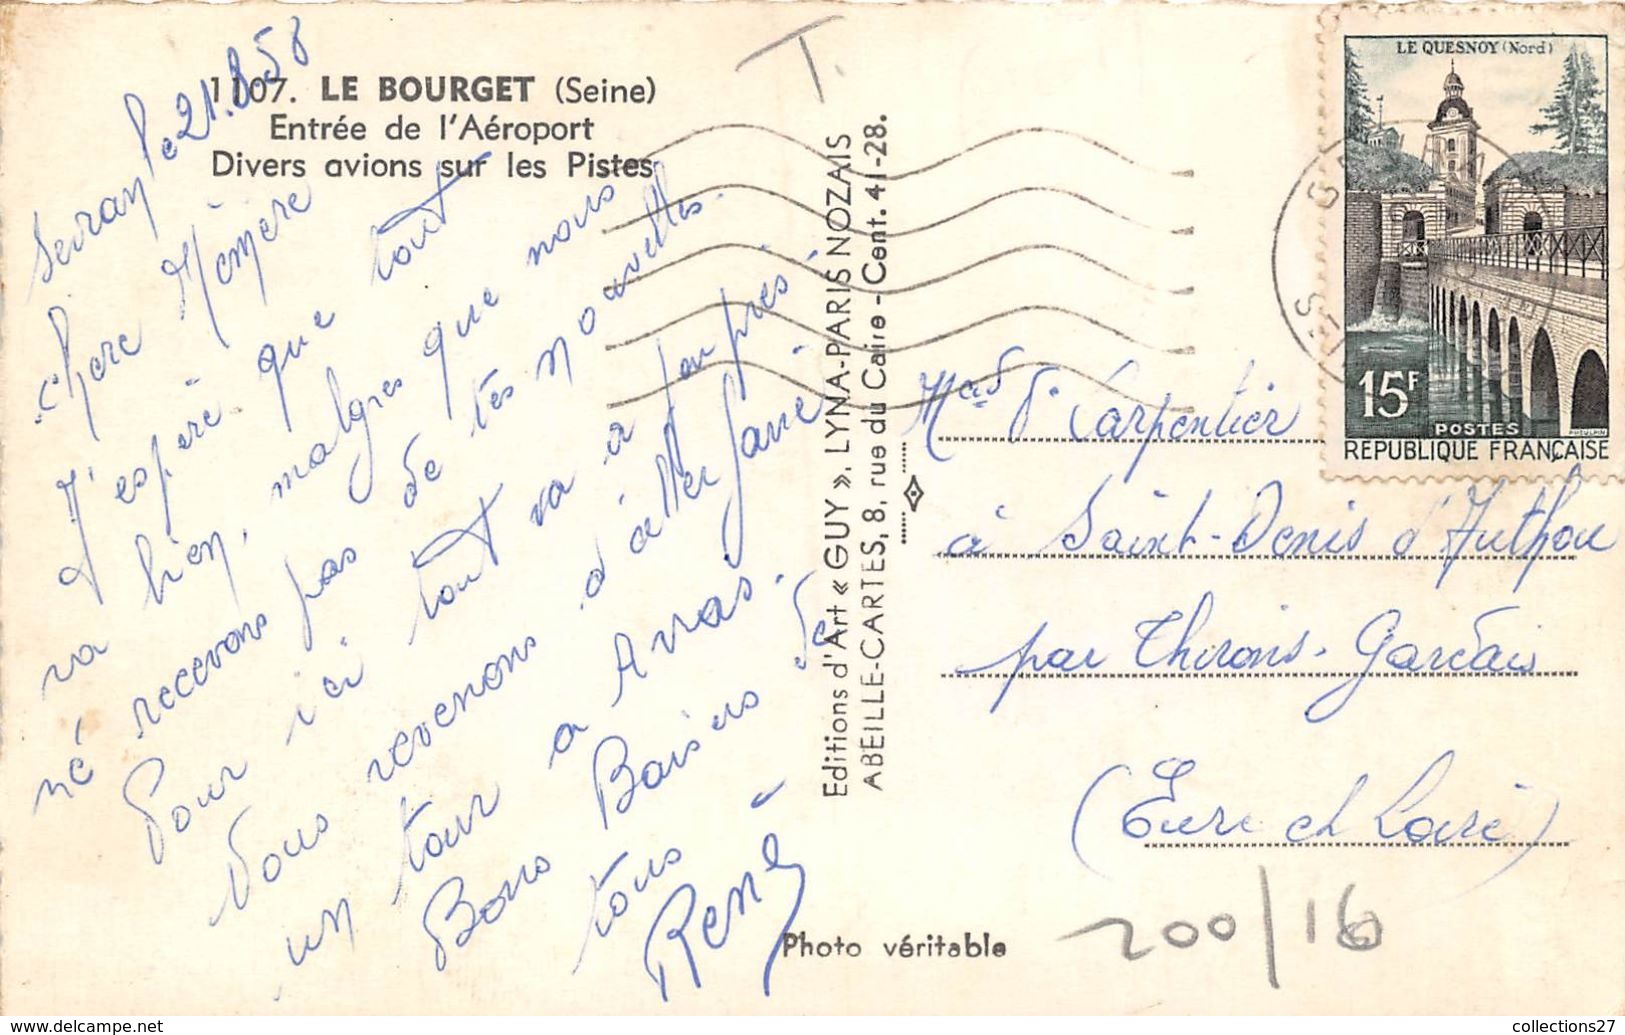 1107. LE BOURGET (Seine)
Entrée de l'Aéroport
Divers avions sur les Pistes
Sevran le 21.8.58
Chere Mémère
J'espère que tout
va bien, malgres que nous
né recevons pas de tés nouvelles.
Pour ici tout va a peu près
Nous revenons d'aller faire
un tour a Arras.
Bons Baisers de
tous
René
Editions d'Art « GUY », LYNA-PARIS NOZAIS
ABEILLE-CARTES, 8, rue du Caire - Cent. 41-28.
T.
LE QUESNOY (Nord)
15F
POSTES
REPUBLIQUE FRANÇAISE
Carpentier
à Saint-Denis d'Authou
par Thirons-Gardais
(Eure et Loire)
200/16
Photo véritable
www.delcampe.net
collections27